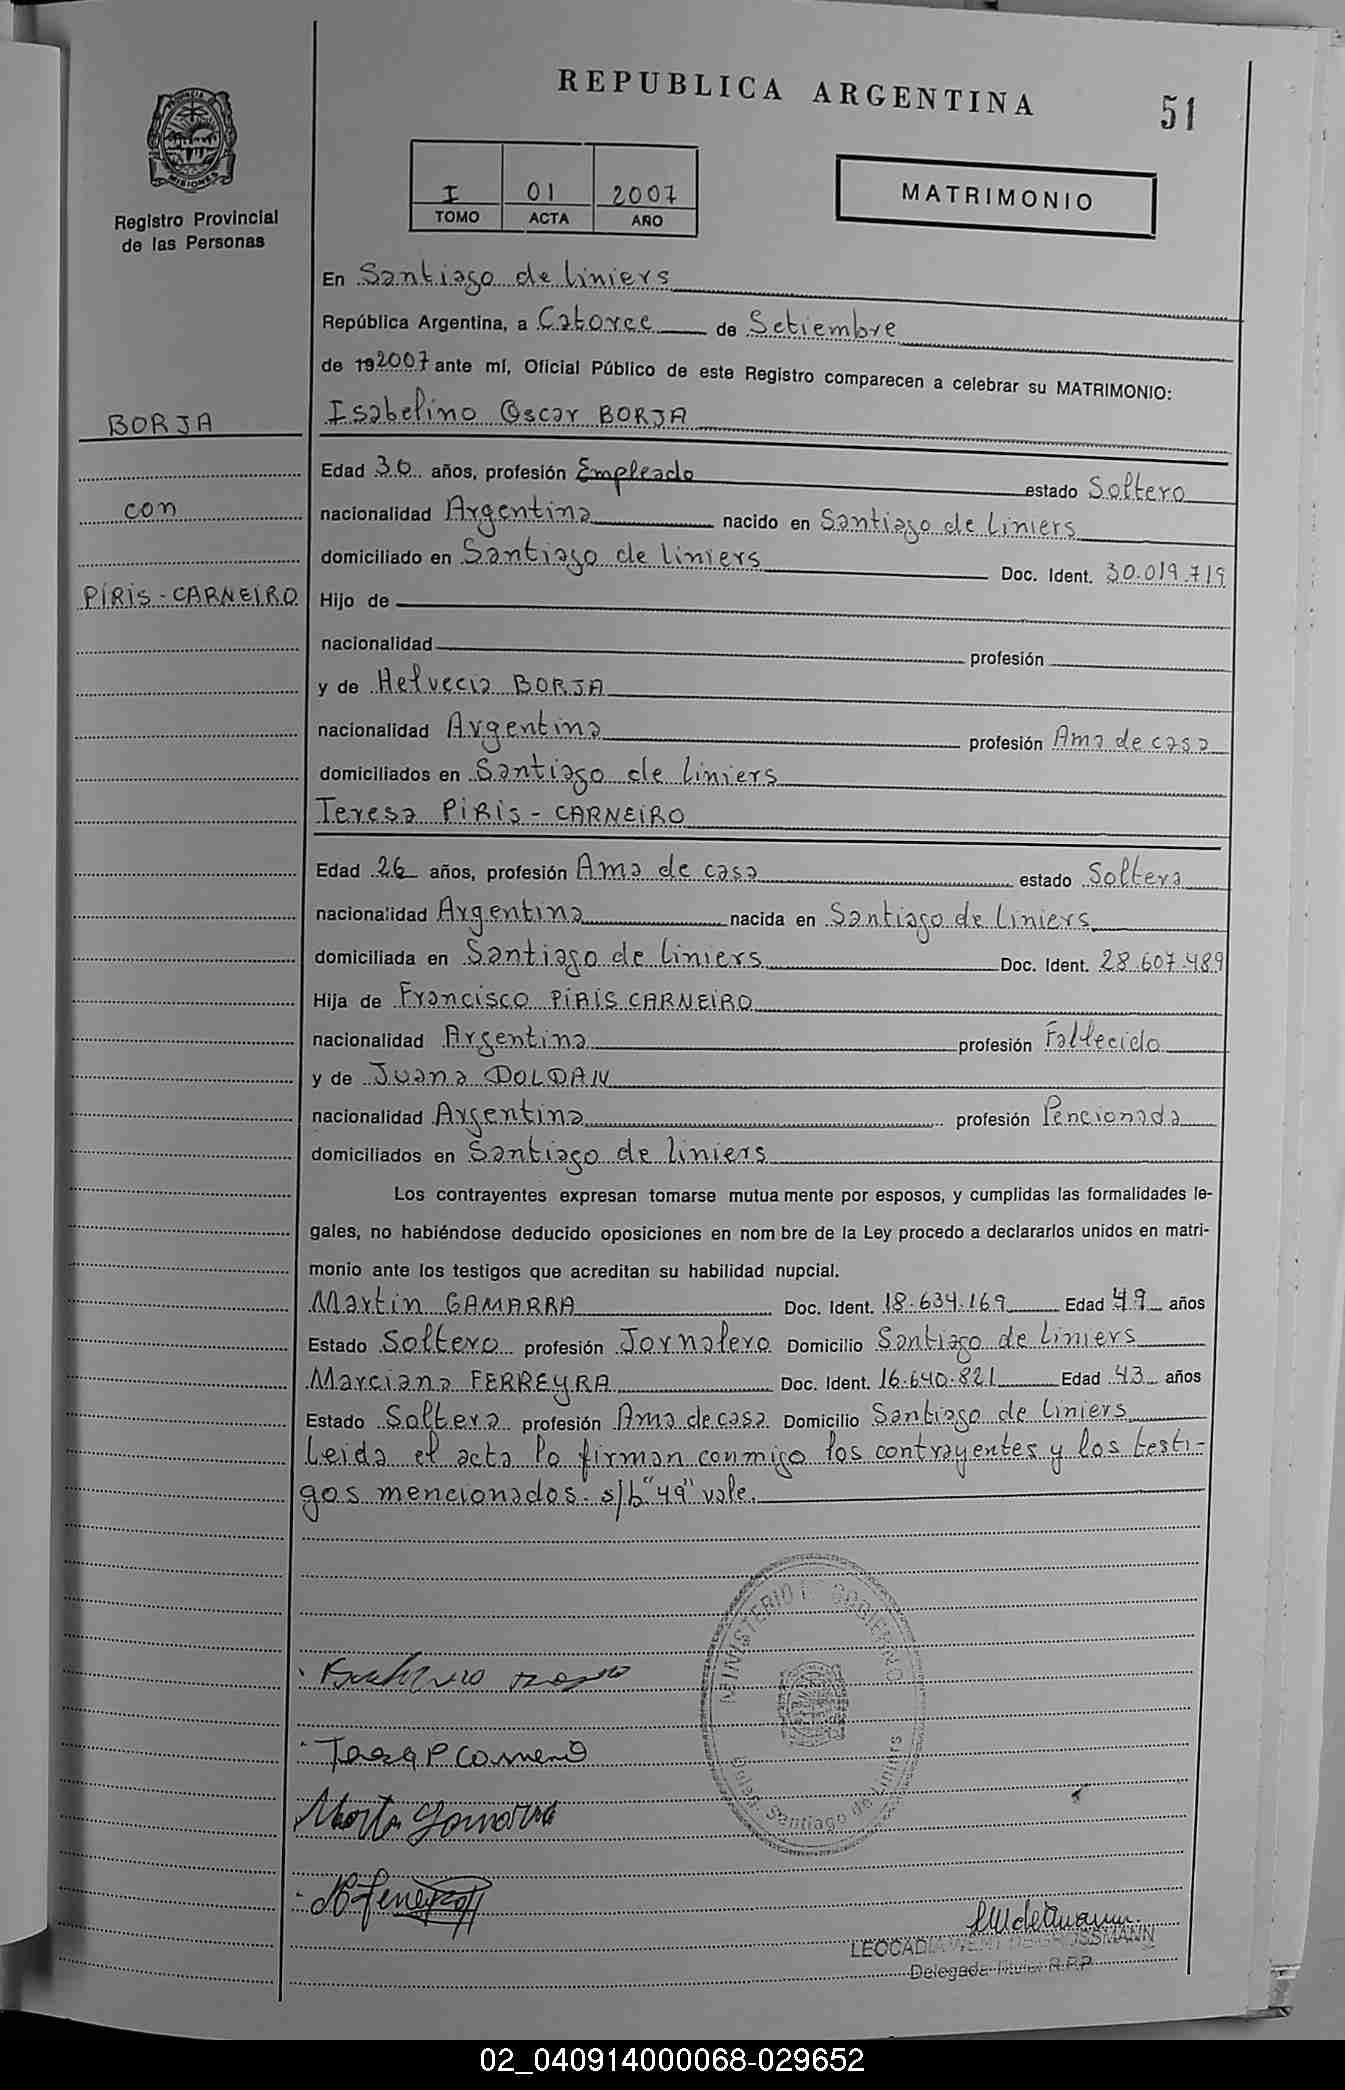 REPUBLICA ARGENTINA
51
PROVINCIA DE
MISIONES
Registro Provincial
de las Personas
I 01 2007
TOMO ACTA AÑO
MATRIMONIO
En Santiago de liniers
República Argentina, a Catorce de Setiembre
de 192007 ante mí, Oficial Público de este Registro comparecen a celebrar su MATRIMONIO:
BORJA
con
PIRIS-CARNEIRO
Isabelino Oscar BORJA
Edad 30 años, profesión Empleado estado Soltero
nacionalidad Argentina nacido en Santiago de Liniers
domiciliado en Santiago de liniers Doc. Ident. 30.019.719
Hijo de
nacionalidad profesión
y de Helvecia BORJA
nacionalidad Argentina profesión Ama de casa
domiciliados en Santiago de liniers
Teresa PIRIS-CARNEIRO
Edad 26 años, profesión Ama de casa estado Soltera
nacionalidad Argentina nacida en Santiago de Liniers
domiciliada en Santiago de liniers Doc. Ident. 28.607.489
Hija de Francisco PIRIS CARNEIRO
nacionalidad Argentina profesión Fallecido
y de Juana DOLDAN
nacionalidad Argentina profesión Pencionada
domiciliados en Santiago de liniers
Los contrayentes expresan tomarse mutua mente por esposos, y cumplidas las formalidades le-
gales, no habiéndose deducido oposiciones en nom bre de la Ley procedo a declararlos unidos en matri-
monio ante los testigos que acreditan su habilidad nupcial.
Martin GAMARRA Doc. Ident. 18.634.169 Edad 49 años
Estado Soltero profesión Jornalero Domicilio Santiago de Liniers
Marciana FERREYRA Doc. Ident. 16.640.821 Edad 43 años
Estado Soltera profesión Ama de casa Domicilio Santiago de liniers
Leida el acta lo firman conmigo los contrayentes y los testi-
gos mencionados. s/b "49" vale.
MINISTERIO GOBIERNO
Deleg. Santiago de Liniers
LEOCADIA WENT DE GROSSMANN
Delegada Titular R.P.P
02_040914000068-029652